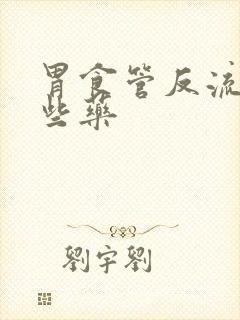 胃食管反流
些藥
劉宇劉